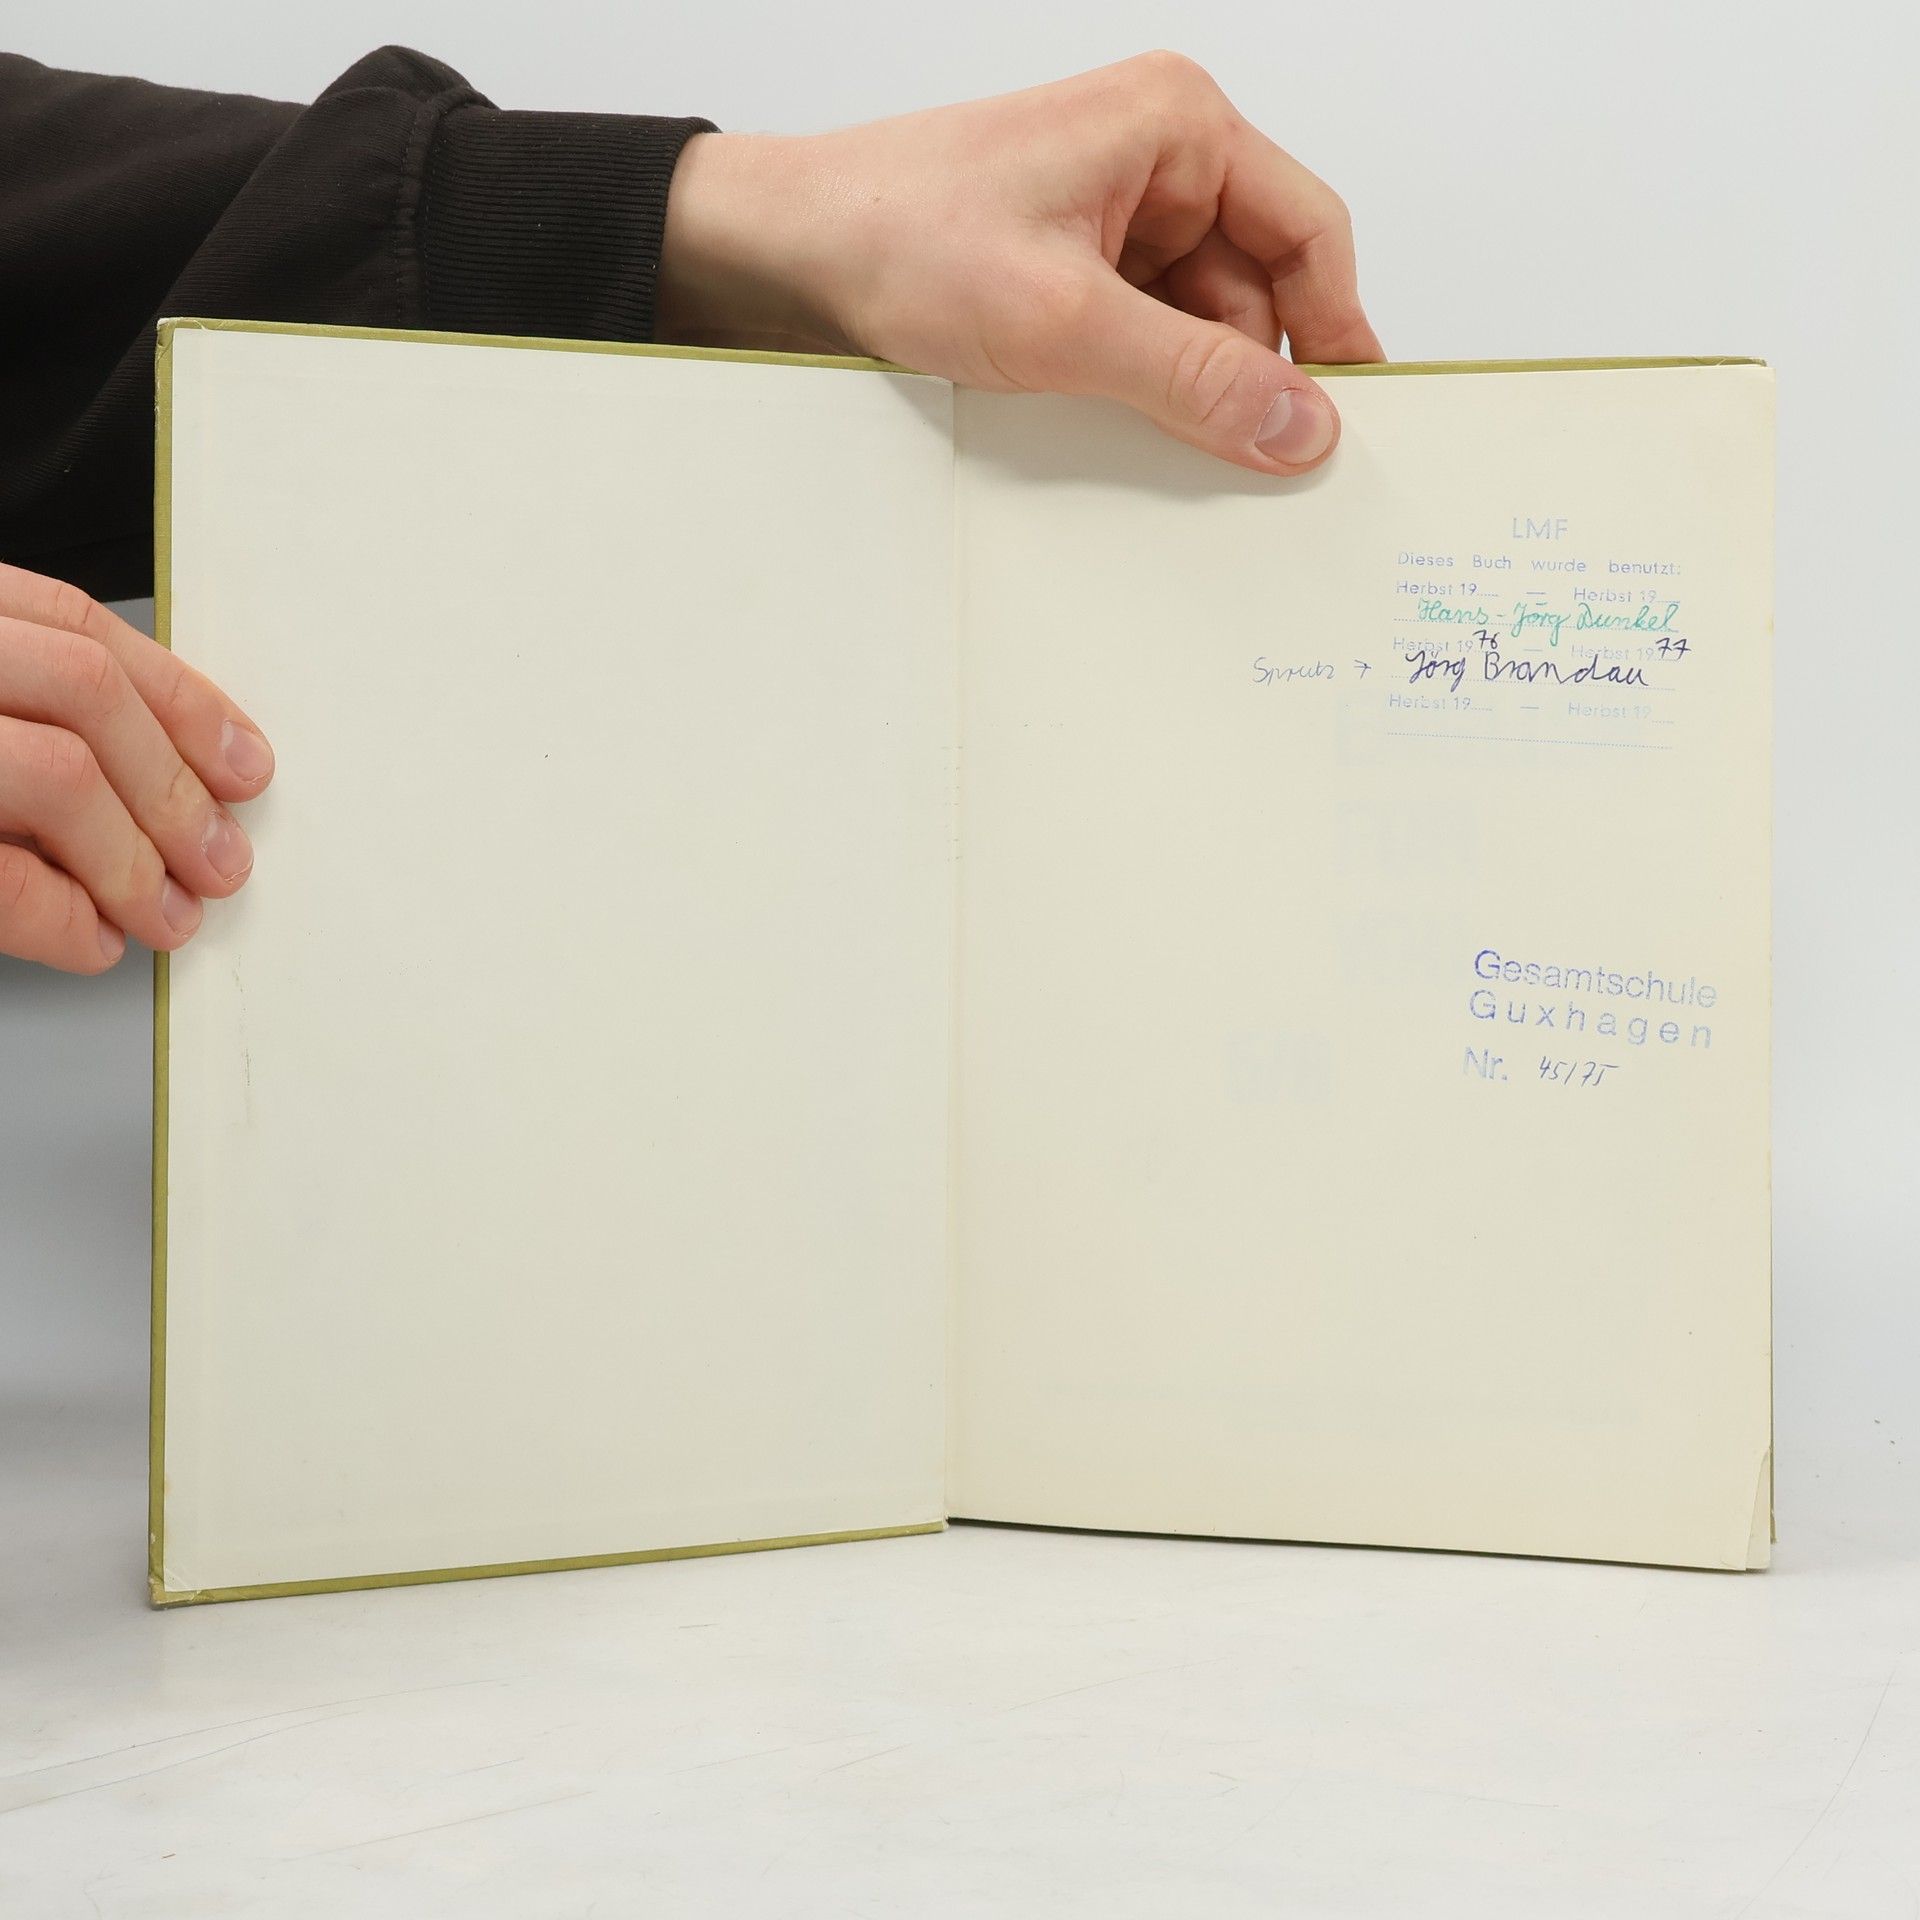 LMF
Dieses Buch wurde benutzt:
Herbst 19..... — Herbst 19.....
Hans-Jörg Dunkel
Herbst 1976 — Herbst 1977
→ Jörg Brandau
Herbst 19..... — Herbst 19.....
Gesamtschule
Guxhagen
Nr. 45/75